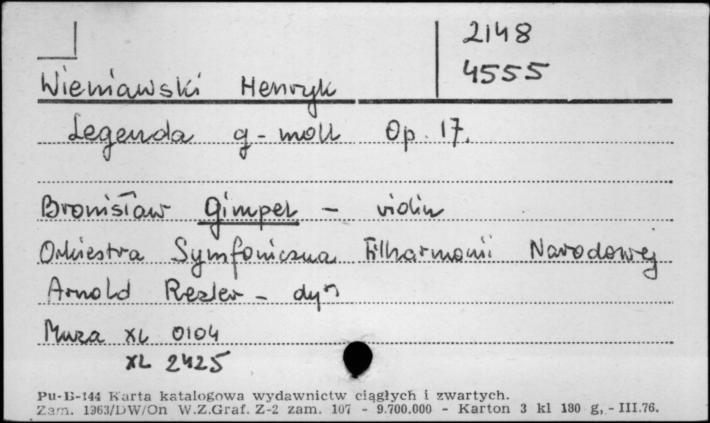 2148
4555
Wieniawski Henryk
Legenda g-moll Op. 17.
Bronisław Gimpel - violin
Orkiestra Symfoniczna Filharmonii Narodowej
Arnold Rezler - dyr
Muza XL 0104
XL 2425
Pu-B-144 Karta katalogowa wydawnictw ciągłych i zwartych.
Zam. 1363/DW/On W.Z.Graf. Z-2 zam. 107 - 9.700.000 - Karton 3 kl 180 g, - III.76.